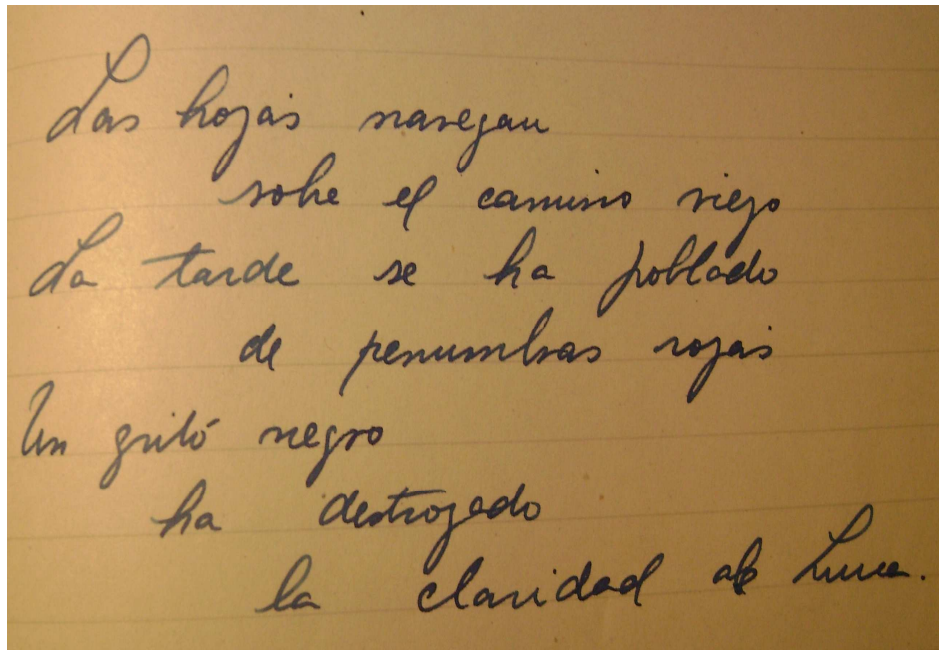 Las hojas navegan
sobre el camino viejo
La tarde se ha poblado
de penumbras rojas
Un grito negro
ha destrozado
la claridad de Luna.